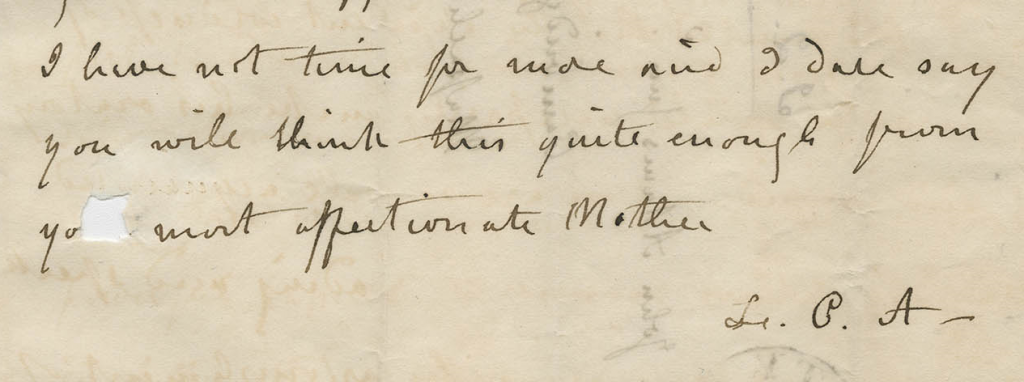 I have not time for more and I dare say
you will think this quite enough from
yo most affectionate Mother
L. C. A—